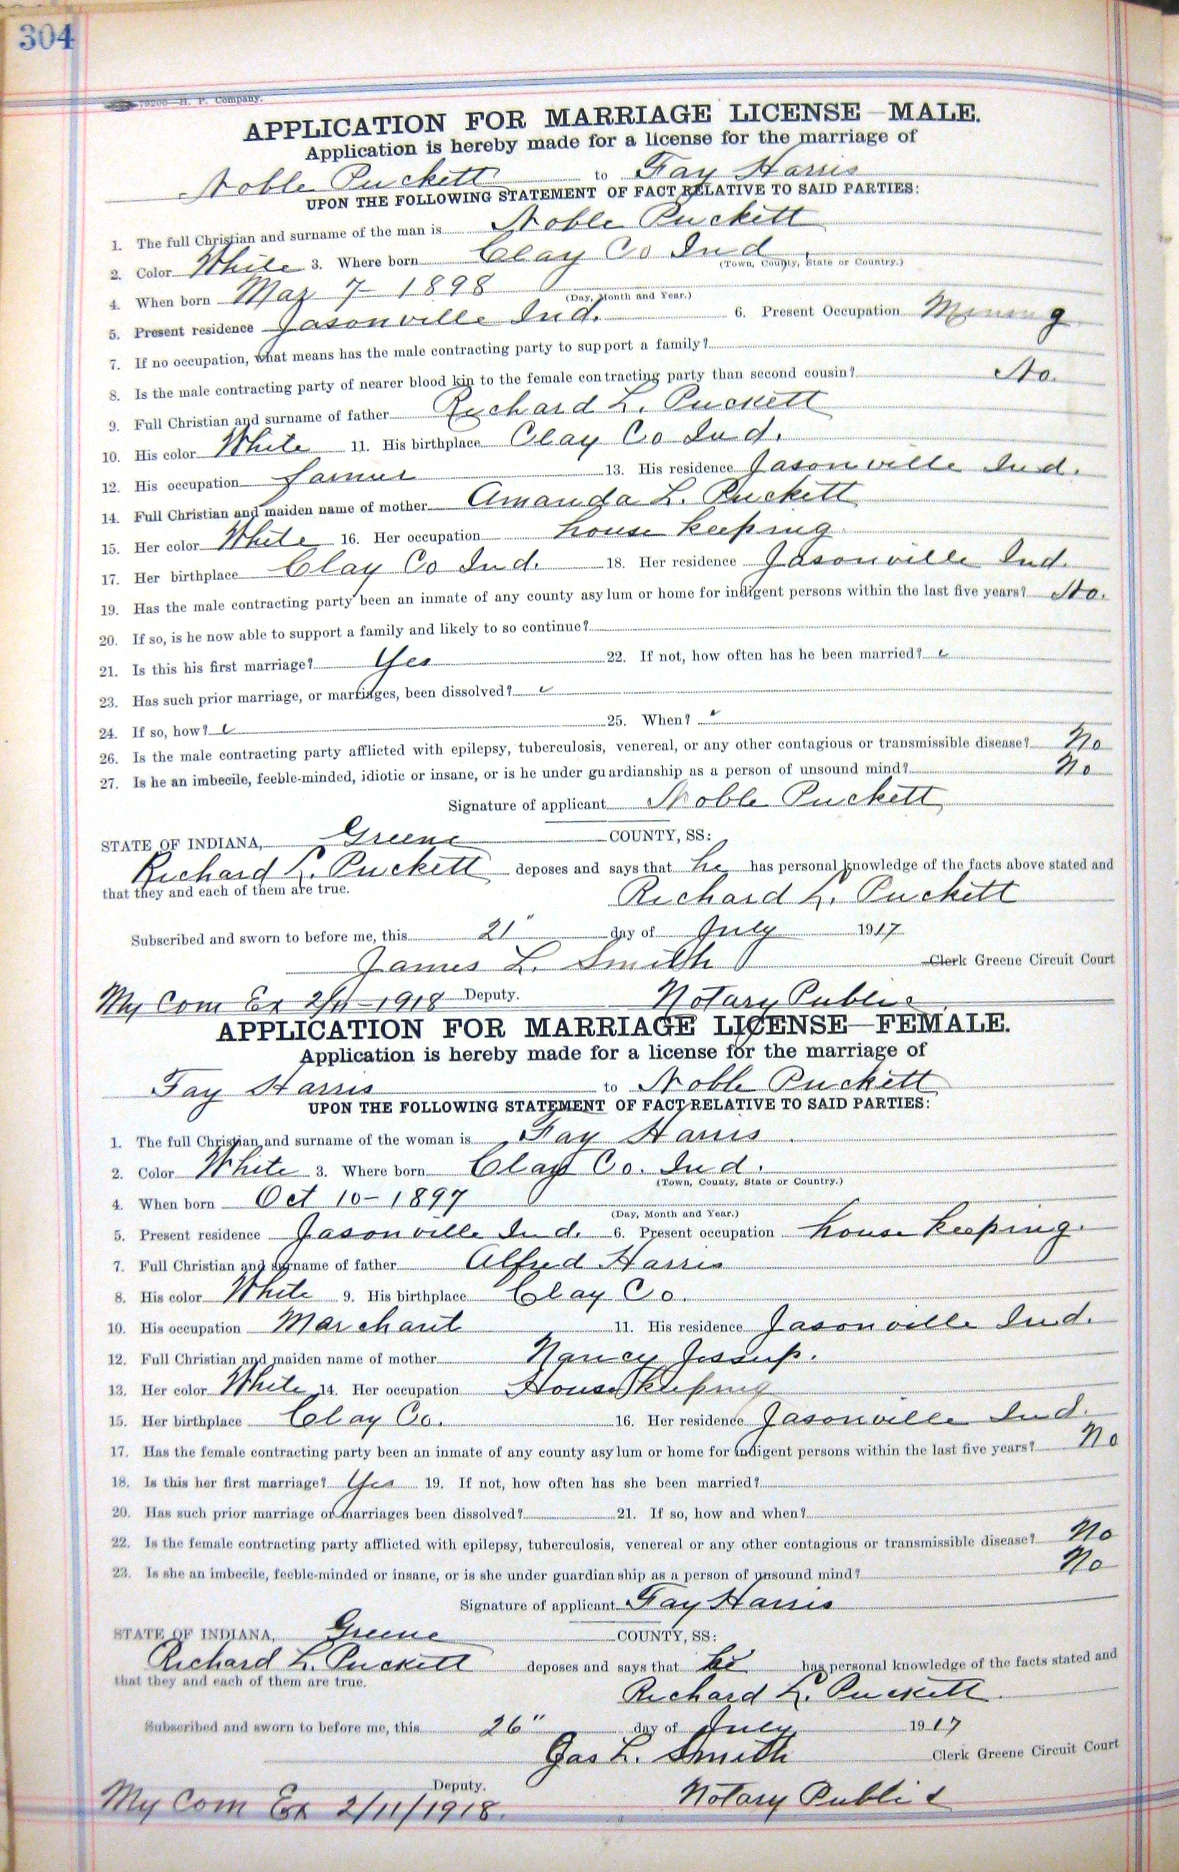 304
79200—H. P. Company.
APPLICATION FOR MARRIAGE LICENSE—MALE.
Application is hereby made for a license for the marriage of
Noble Puckett to Fay Harris
UPON THE FOLLOWING STATEMENT OF FACT RELATIVE TO SAID PARTIES:
1. The full Christian and surname of the man is Noble Puckett
2. Color White 3. Where born Clay Co Ind.
(Town, County, State or Country.)
4. When born Mar 7 - 1898
(Day, Month and Year.)
5. Present residence Jasonville Ind. 6. Present Occupation Mining
7. If no occupation, what means has the male contracting party to support a family?
8. Is the male contracting party of nearer blood kin to the female contracting party than second cousin? No.
9. Full Christian and surname of father Richard L. Puckett
10. His color White 11. His birthplace Clay Co Ind.
12. His occupation farmer 13. His residence Jasonville Ind.
14. Full Christian and maiden name of mother Amanda L. Puckett
15. Her color White 16. Her occupation house keeping
17. Her birthplace Clay Co Ind. 18. Her residence Jasonville Ind.
19. Has the male contracting party been an inmate of any county asylum or home for indigent persons within the last five years? No.
20. If so, is he now able to support a family and likely to so continue?
21. Is this his first marriage? Yes 22. If not, how often has he been married?
23. Has such prior marriage, or marriages, been dissolved?
24. If so, how? 25. When?
26. Is the male contracting party afflicted with epilepsy, tuberculosis, venereal, or any other contagious or transmissible disease? No
27. Is he an imbecile, feeble-minded, idiotic or insane, or is he under guardianship as a person of unsound mind? No
Signature of applicant Noble Puckett
STATE OF INDIANA, Greene COUNTY, SS:
Richard L. Puckett deposes and says that he has personal knowledge of the facts above stated and
that they and each of them are true. Richard L. Puckett
Subscribed and sworn to before me, this 21" day of July 1917
James L. Smith Clerk Greene Circuit Court
My Com Ex 2/11-1918 Deputy. Notary Public
APPLICATION FOR MARRIAGE LICENSE—FEMALE.
Application is hereby made for a license for the marriage of
Fay Harris to Noble Puckett
UPON THE FOLLOWING STATEMENT OF FACT RELATIVE TO SAID PARTIES:
1. The full Christian and surname of the woman is Fay Harris
2. Color White 3. Where born Clay Co. Ind.
(Town, County, State or Country.)
4. When born Oct 10 - 1897
(Day, Month and Year.)
5. Present residence Jasonville Ind. 6. Present occupation house keeping.
7. Full Christian and surname of father Alfred Harris
8. His color White 9. His birthplace Clay Co.
10. His occupation Marchant 11. His residence Jasonville Ind.
12. Full Christian and maiden name of mother Nancy Jessup.
13. Her color White 14. Her occupation House keeping
15. Her birthplace Clay Co. 16. Her residence Jasonville Ind.
17. Has the female contracting party been an inmate of any county asylum or home for indigent persons within the last five years? No
18. Is this her first marriage? Yes 19. If not, how often has she been married?
20. Has such prior marriage or marriages been dissolved? 21. If so, how and when?
22. Is the female contracting party afflicted with epilepsy, tuberculosis, venereal or any other contagious or transmissible disease? No
23. Is she an imbecile, feeble-minded or insane, or is she under guardianship as a person of unsound mind? No
Signature of applicant Fay Harris
STATE OF INDIANA, Greene COUNTY, SS:
Richard L. Puckett deposes and says that he has personal knowledge of the facts stated and
that they and each of them are true. Richard L. Puckett.
Subscribed and sworn to before me, this 26" day of July 1917
Jas L. Smith Clerk Greene Circuit Court
Deputy.
My Com Ex 2/11/1918. Notary Public